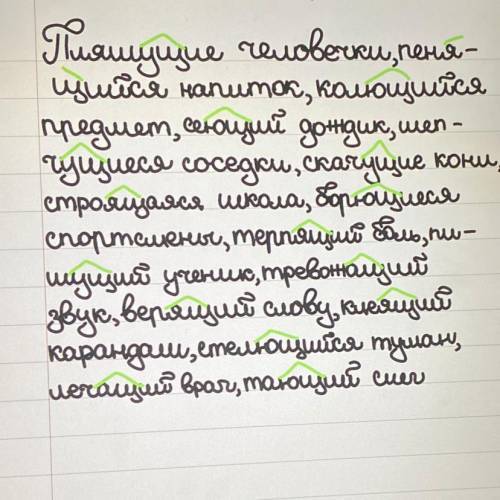 Пляшущие человечки, пеня-
щийся напиток, колющийся
предмет, сеющий дождик, шеп-
чущиеся соседки, скачущие кони,
строящаяся школа, борющиеся
спортсмены, терпящий боль, пи-
шущий ученик, тревожащий
звук, верящий слову, клеящий
карандаш, стелющийся туман,
лечащий врач, тающий снег